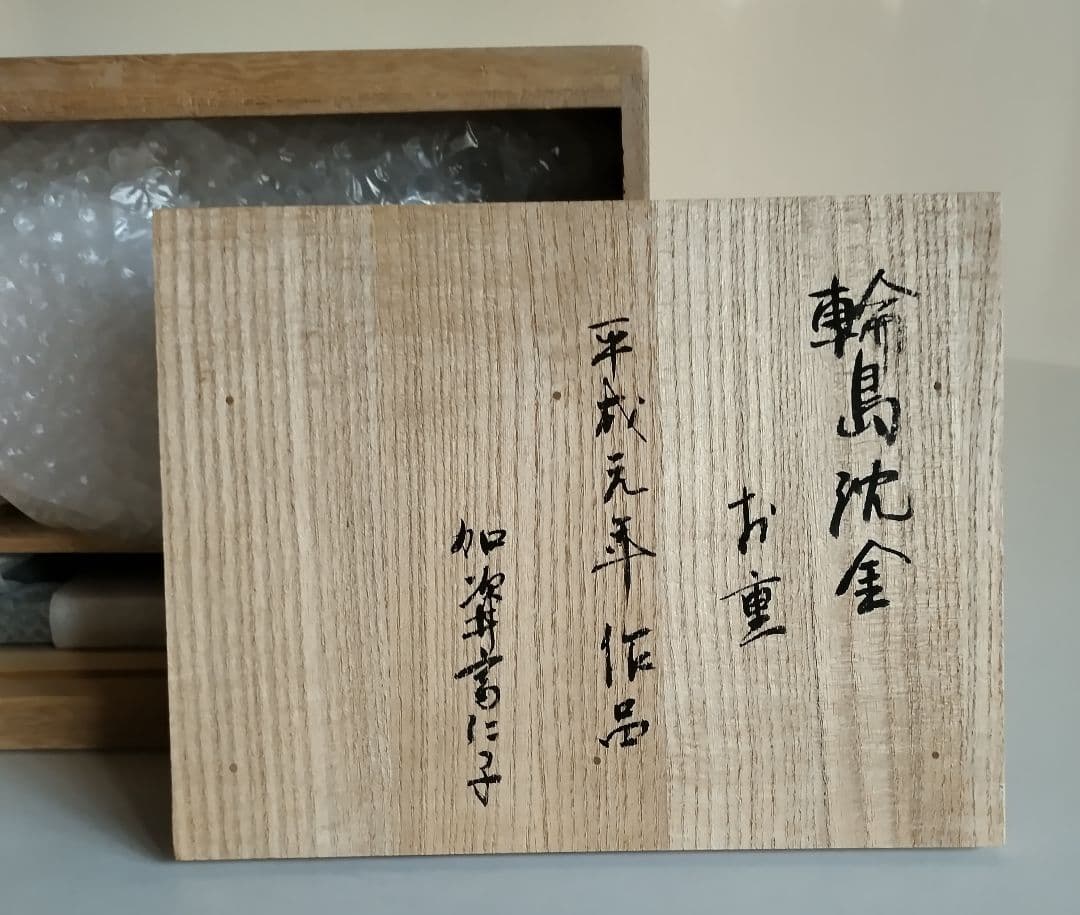 輪島沈金
お重
平成元年 作品
加次井富仁子